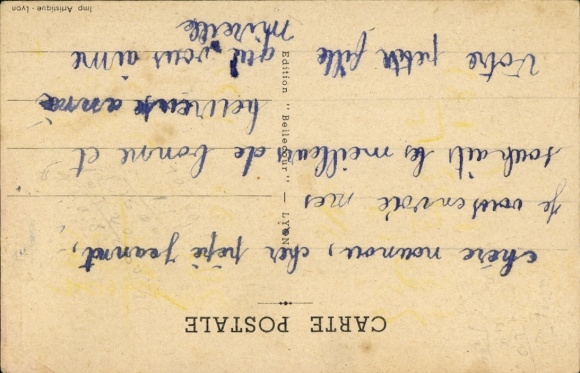 CARTE POSTALE
chère nounou, cher pépé jeannot,
je vous envoie mes
souhaits les meilleurs de bonne et
heureuse année
Votre petite fille qui vous aime
mireille
Edition "Bellecour" — LYON
Imp Artistique - Lyon